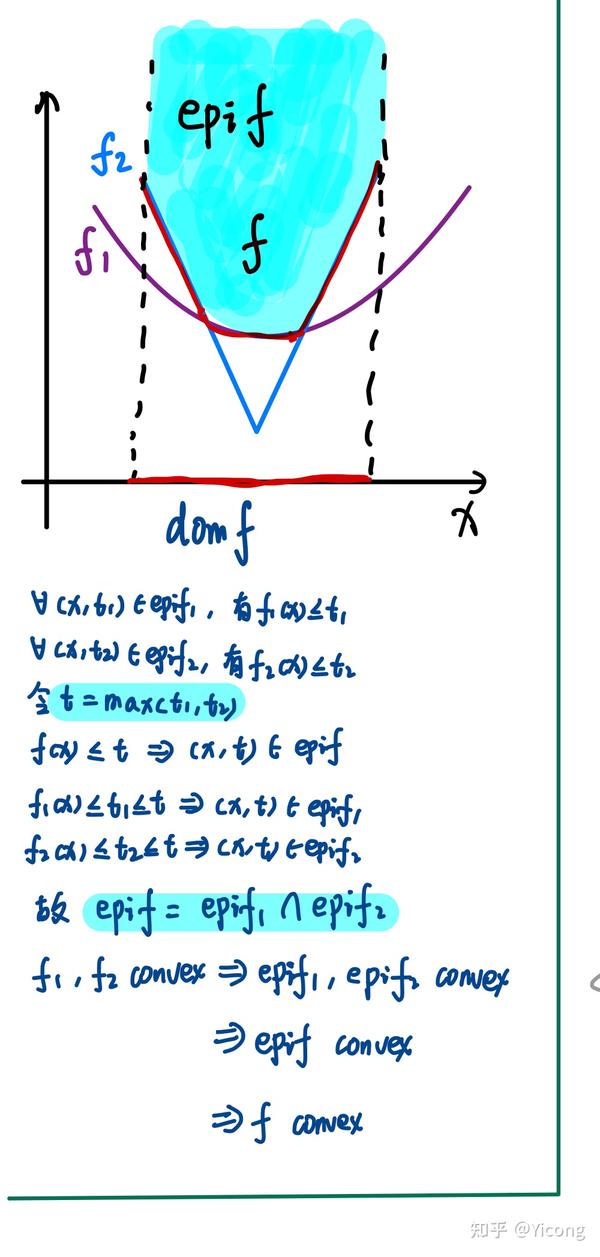 epi f
f₂
f
f₁
x
dom f
∀(x,t₁)∈epif₁，有f₁(x)≤t₁
∀(x,t₂)∈epif₂，有f₂(x)≤t₂
令t=max(t₁,t₂)
f(x)≤t ⇒ (x,t)∈epif
f₁(x)≤t₁≤t ⇒ (x,t)∈epif₁
f₂(x)≤t₂≤t ⇒ (x,t)∈epif₂
故 epif = epif₁ ∩ epif₂
f₁, f₂ convex ⇒ epif₁, epif₂ convex
⇒ epif convex
⇒ f convex
知乎 @Yicong